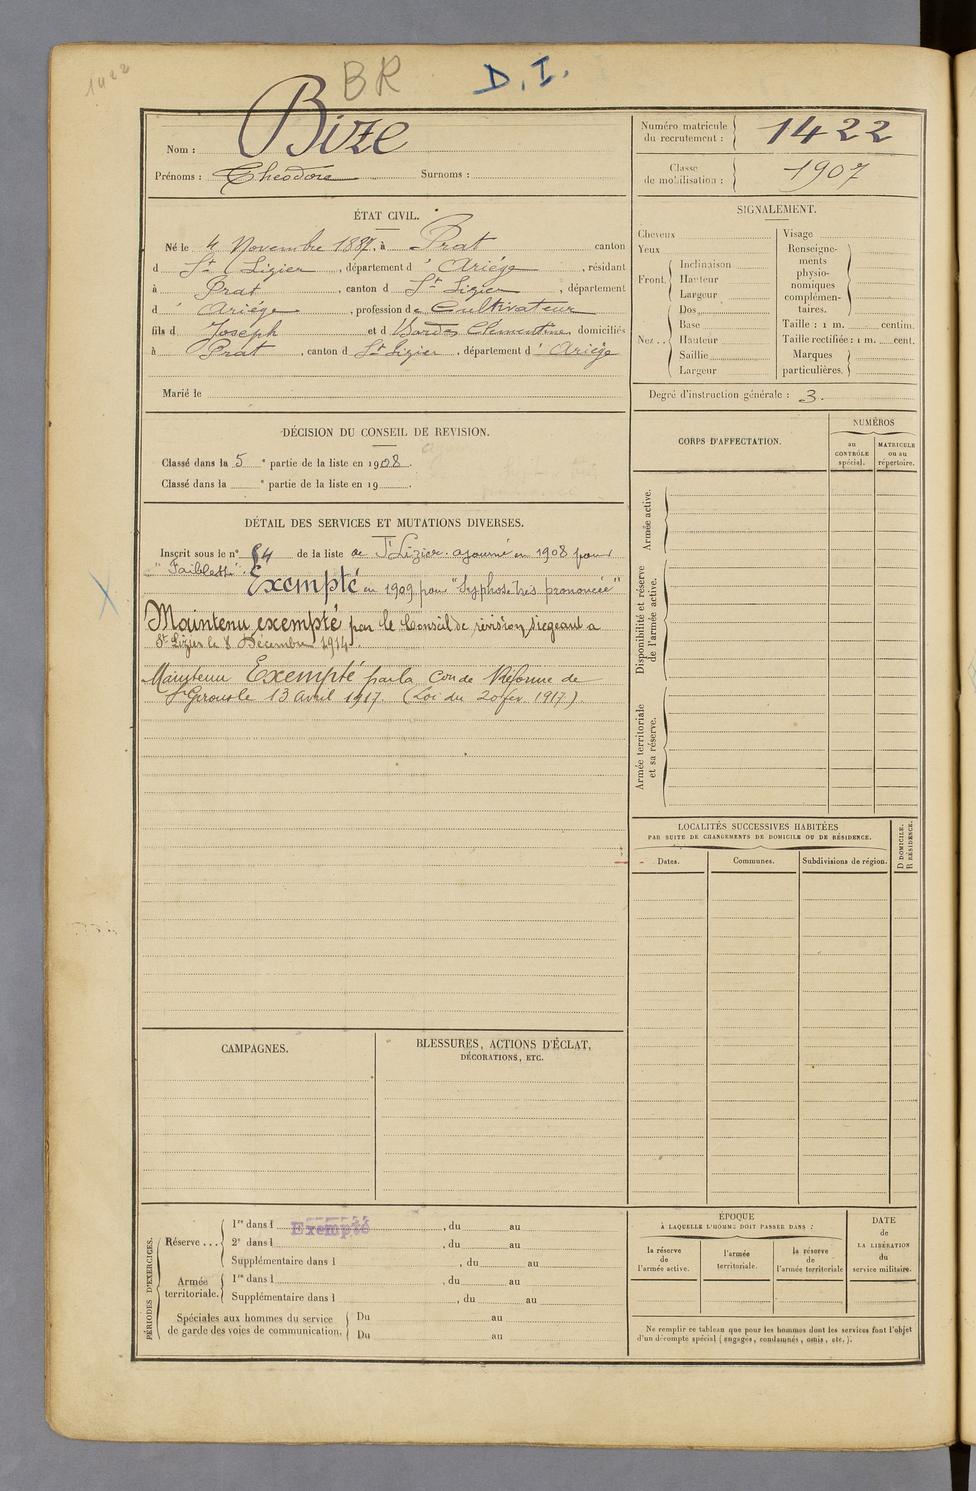 1422
BR
D.I.
Nom : Bize
Prénoms : Théodore Surnoms :
Numéro matricule du recrutement : 1422
Classe de mobilisation : 1907
ÉTAT CIVIL.
Né le 4 Novembre 1887, à Prat canton
d St Lizier, département d' Ariége, résidant
à Prat, canton d St Lizier, département
d' Ariége, profession de Cultivateur
fils d Joseph et d Bardos Clémentine domiciliés
à Prat, canton d St Lizier, département d' Ariége
Marié le
SIGNALEMENT.
Cheveux
Yeux
Front
Inclinaison
Hauteur
Largeur
Nez ..
Dos
Base
Hauteur
Saillie
Largeur
Visage
Renseigne-
ments
physio-
nomiques
complémen-
taires.
Taille : 1 m. centim.
Taille rectifiée : 1 m. cent.
Marques
particulières.
Degré d'instruction générale : 3.
DÉCISION DU CONSEIL DE REVISION.
Classé dans la 5 e partie de la liste en 1908.
Classé dans la e partie de la liste en 19 .
CORPS D'AFFECTATION.
NUMÉROS
au CONTRÔLE spécial.
MATRICULE ou au répertoire.
Armée active.
Disponibilité et réserve
de l'armée active.
Armée territoriale
et sa réserve.
DÉTAIL DES SERVICES ET MUTATIONS DIVERSES.
Inscrit sous le n° 84 de la liste de St Lizier. ajourné en 1908 pour
"Faiblesse".
Exempté en 1909 pour "Syphose très prononcée"
Maintenu exempté par le Conseil de révision siégeant à
St Lizier le 8 Décembre 1914.
Maintenu Exempté par la Con de Réforme de
St Girons le 13 Avril 1917. (Loi du 20 fev. 1917).
LOCALITÉS SUCCESSIVES HABITÉES
PAR SUITE DE CHANGEMENTS DE DOMICILE OU DE RÉSIDENCE.
D DOMICILE.
R RÉSIDENCE.
Dates.
Communes.
Subdivisions de région.
CAMPAGNES.
BLESSURES, ACTIONS D'ÉCLAT,
DÉCORATIONS, ETC.
PÉRIODES D'EXERCICES.
Réserve ...
1re dans l Exempté, du au
2e dans l , du au
Supplémentaire dans l , du au
Armée
territoriale.
1re dans l , du au
Supplémentaire dans l , du au
Spéciales aux hommes du service
de garde des voies de communication.
Du au
Du au
ÉPOQUE
À LAQUELLE L'HOMME DOIT PASSER DANS :
la réserve
de
l'armée active.
l'armée
territoriale.
la réserve
de
l'armée territoriale
DATE
de
LA LIBÉRATION
du
service militaire.
Ne remplir ce tableau que pour les hommes dont les services font l'objet
d'un décompte spécial (engagés, condamnés, omis, etc.).